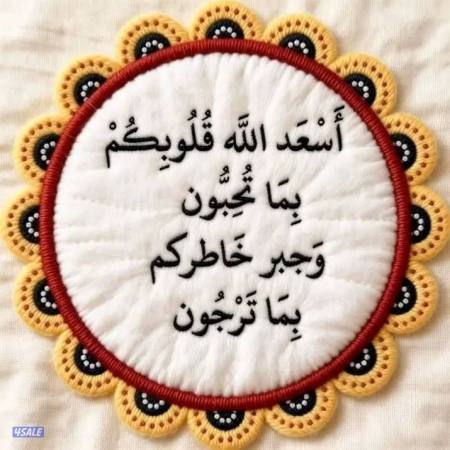 أَسْعَد اللَّه قُلُوبِكُمْ
بِمَا تُحِبُّون
وَجبر خَاطركم
بِمَا تَرْجُون
4SALE